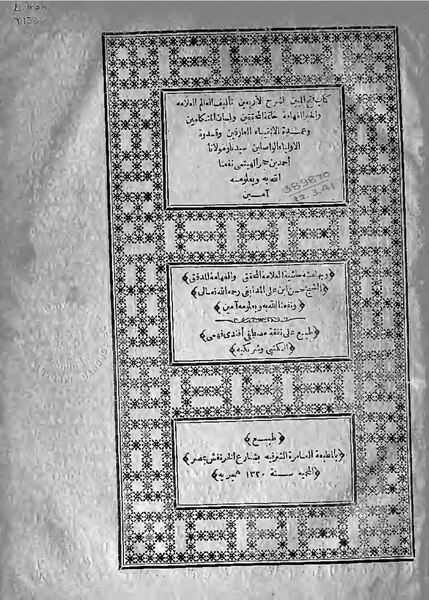 كتاب فتح المبين لشرح الأربعين تأليف العالم العلامه
والحبر الفهامة خاتمة المحققين ولسان المتكلمين
وعمدة الأتقياء العارفين وقدوة
الاولياء الواصلين سيدنا ومولانا
أحمد بن حجر الهيتمى نفعنا
الله به وبعلومه
آمين
389870
12.3.41
﴿وبهامشه حاشية العلامة المحقق والفهامة المدقق﴾
﴿الشيخ حسن ابن على المدابغى رحمه الله تعالى﴾
﴿ونفعنا الله به وبعلومه آمين﴾
﴿طبع على نفقة مصطفى أفندى فهمى﴾
﴿الكتبى وشريكيه﴾
﴿طبع﴾
﴿بالمطبعة العامرة الشرفيه بشارع الخرنفش بمصر﴾
﴿المحمية سنة ١٣٢٠ هجريه﴾